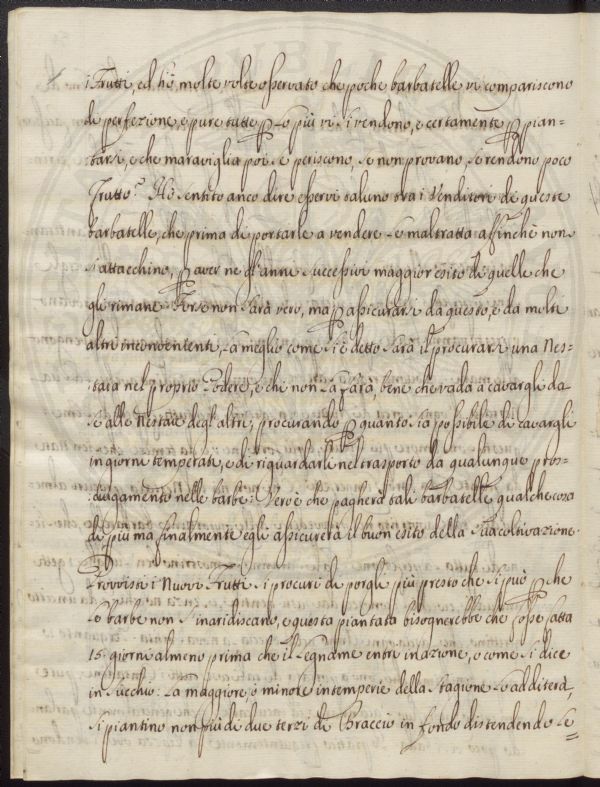 i Frutti, ed hò, molte volte osservato che poche barbatelle vi compariscono
di perfezione, e pure tutte p lo più vi si vendono, e certamente p pian=
tarsi, e che maraviglia poi se periscono, se non provano, se rendono poco
Frutto? Hò sentito anco dire esservi taluno tra i Venditori di queste
barbatelle, che prima di portarle a vendere le maltratta affinchè non
si attacchino, p aver ne gl'anni successivi maggior esito di quelle che
gli rimane. Forse non sarà vero, ma p assicurarsi da questo, e da molti
altri inconvenienti, la meglio come si è detto sarà il procurarsi una Nes=
taia nel proprio Podere, e chi non la farà, bene che vada a cavargli da
se alle Nestaie degl'altri, procurando p quanto sia possibile di cavargli
in giorni temperati, e di riguardarli nel trasporto da qualunque pros=
ciugamento nelle barbe: Vero è che pagherà tali barbatelle qualche cosa
di più ma finalmente egli assicurerà il buon esito della sua coltivazione.
Provvisti i Nuovi Frutti si procuri di porgli più presto che si può p che
le barbe non s'inaridiscano, e questa piantata bisognerebbe che fosse fatta
15 giorni almeno prima che il Legname entri in azione, o come si dice
in succhio: La maggiore, o minore intemperie della stagione lo additerà,
si piantino non più di due terzi di Braccio in fondo distendendo le=